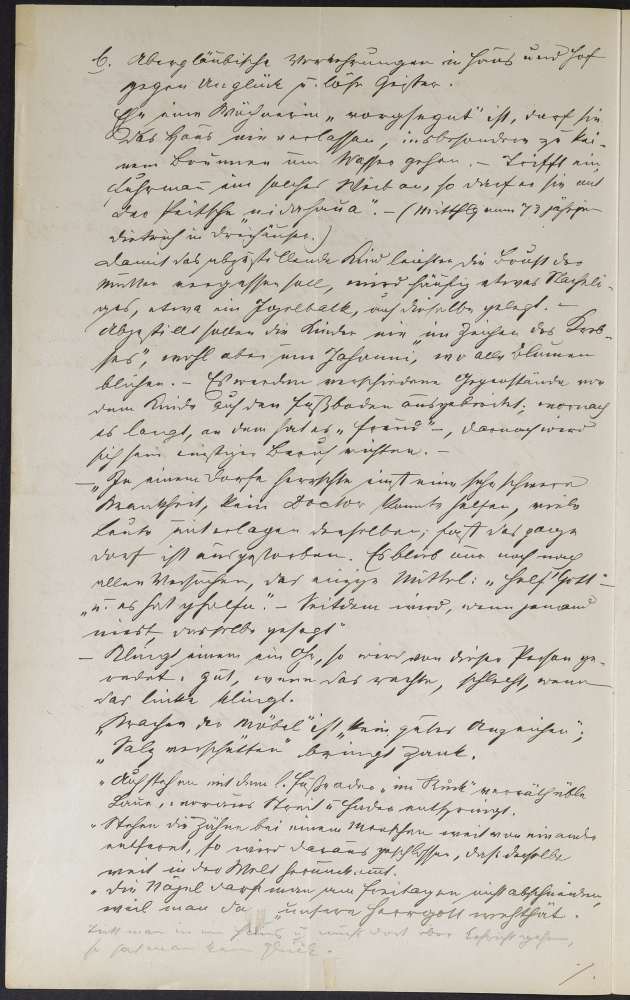 b. Abergläubische Vorkehrungen in Haus und Hof
gegen Unglück u. böse Geister.
Ehe eine Wöchnerin „vorgsegnt" ist, darf sie
das Haus nie verlassen, insbesondere zu kei-
nem Brunnen um Wasser gehen. – Trifft ein
Fuhrmann ein solches Weib an, so darf er sie mit
der Peitsche „niderhaua". – (Mitthlg vom 73 jährigen
Dietrich in Dreihäuser.)
Damit das abzustillende Kind leichter die Brust der
Mutter vergessen soll, wird häufig etwas Stacheli-
ges, etwa ein Igelbalk, auf dieselbe gelegt. –
Abgestillt sollen die Kinder nie „im Zeichen des Kreb-
ses", wohl aber um Johanni, wo alle Blumen
blühen. – Es werden verschiedene Gegenstände vor
dem Kinde auf den Fußboden ausgebreitet; wornach
es langt, an dem hat es „Freud" –, darnach wird
sich sein einstiger Beruf richten. –
– „In einem Dorfe herrschte einst eine sehr schwere
Krankheit, kein Doctor konnte helfen, viele
Leute unterlagen derselben; fast das ganze
Dorf ist ausgestorben. Es blieb nur noch nach
allen Versuchen, das einzige Mittel: „Helf Gott" –
„u. es hat gholfa". – Seitdem wird, wenn jemand
niest, dasselbe gesagt"
– Klingt einem ein Ohr, so wird von dieser Person ge-
redet: gut, wenn das rechte, schlecht, wenn
das linke klingt.
„Krachen der Möbel" ist „kein gutes Anzeichen";
„Salz verschütten" bringt Zank.
„ Aufstehen mit dem l. Fuß oder „im Ruck" verräth üble
Laune, woraus Streit u Hader entspringt.
„ Stehen die Zähne bei einem Menschen weit von einander
entfernt, so wird daraus geschlossen, daß derselbe
weit in der Welt herumkomt.
„ Die Nägel darf man am Freitagen nicht abschneiden,
weil man da „unsern Herrgott wehthät.
man in ein Haus u muß dort über Kehricht gehen,
so hat man kein Glück.
./.